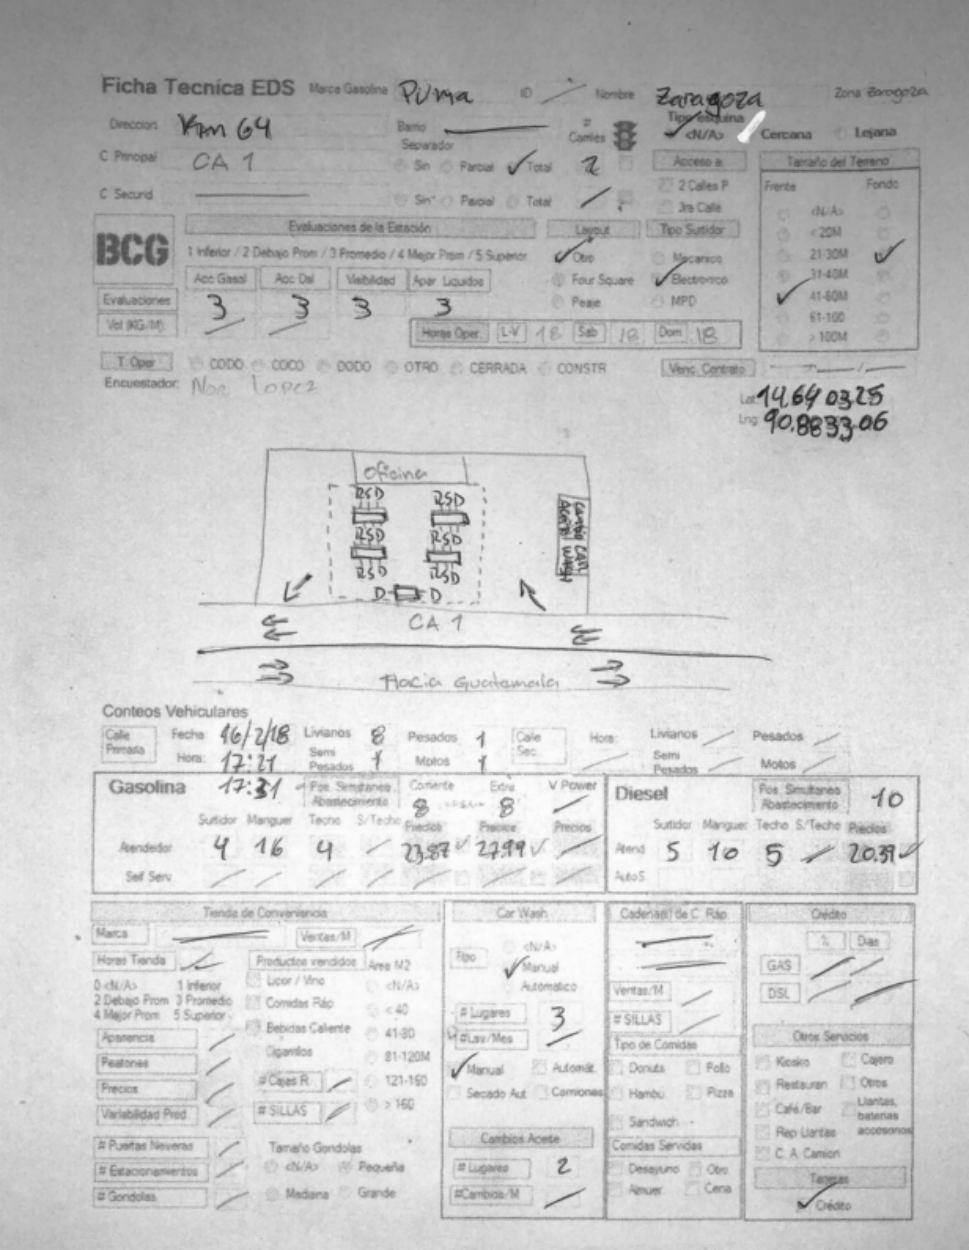 Ficha Tecnica EDS Marca Gasolina Puma ID Nombre Zaragoza Zona Zaragoza
Direccion Km 64 Barrio # Carriles Tipo esquina <N/A> Cercana Lejana
Separador
C Principal CA 1 Sin Parcial Total 2 Acceso a: Tamaño del Terreno
C Secund Sin Parcial Total 2 Calles P Frente Fondo
3ra Calle <N/A>
BCG Evaluaciones de la Estación Layout Tipo Surtidor < 20M
1 Inferior / 2 Debajo Prom / 3 Promedio / 4 Mejor Prom / 5 Superior Otro Mecanico 21-30M
Acc Gasol Acc Dsl Visibilidad Apar Liquidos Four Square Electronico 31-40M
Evaluaciones 3 3 3 3 Peaje MPD 41-60M
61-100
Vol (KG/M) Horas Oper. L-V 18 Sab 18 Dom 18 > 100M
T. Oper CODO COCO DODO OTRO CERRADA CONSTR Venc. Contrato
Encuestador: Noe Lopez
Lat 14.64 03.25
Lng 90.8833.06
Oficina
RSD RSD
RSD RSD
RSD RSD
D D
Cambio Aceite CAR WASH
CA 1
Hacia Guatemala
Conteos Vehiculares
Calle Primaria Fecha 16/2/18 Livianos 8 Pesados 1 Calle Sec. Hora: Livianos Pesados
Hora: 17:21 Semi Pesados 1 Motos 1 Semi Pesados Motos
17:31
Gasolina Pos. Simultaneo Abastecimiento Corriente 8 Extra 8 V Power
Diesel Pos. Simultaneo Abastecimiento 10
Surtidor Manguer Techo S/Techo Precios Precios Precios
Surtidor Manguer Techo S/Techo Precios
Atendedor 4 16 4 23.87 27.99
Atend 5 10 5 20.39
Self Serv.
Auto S
Tienda de Conveniencia
Marca Ventas/M
Horas Tienda Productos vendidos Area M2
0 <N/A> 1 Inferior
2 Debajo Prom 3 Promedio
4 Mejor Prom 5 Superior
Licor / Vino <N/A>
Comidas Ráp < 40
Bebidas Caliente 41-80
Cigarrillos 81-120M
# Cajas R 121-160
# SILLAS > 160
Apariencia
Peatones
Precios
Variabilidad Prod
# Puertas Neveras
# Estacionamientos
# Gondolas
Tamaño Gondolas
<N/A> Pequeña
Mediana Grande
Car Wash
Tipo <N/A>
Manual
Automatico
# Lugares 3
#Lav/Mes
Manual Automát.
Secado Aut Camiones
Cambios Aceite
# Lugares 2
#Cambios/M
Cadena(s) de C. Ráp.
Ventas/M
# SILLAS
Tipo de Comidas
Donuts Pollo
Hambu Pizza
Sandwich
Comidas Servidas
Desayuno Otro
Almuer Cena
Crédito
% Dias
GAS
DSL
Otros Servicios
Kiosko Cajero
Restauran Otros
Café/Bar Llantas, baterias accesorios
Rep Llantas
C. A. Camion
Tarjetas
Crédito